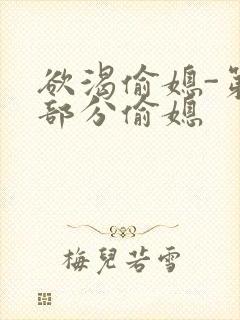 欲渴偷媳-第
部分偷媳
梅兒若雪